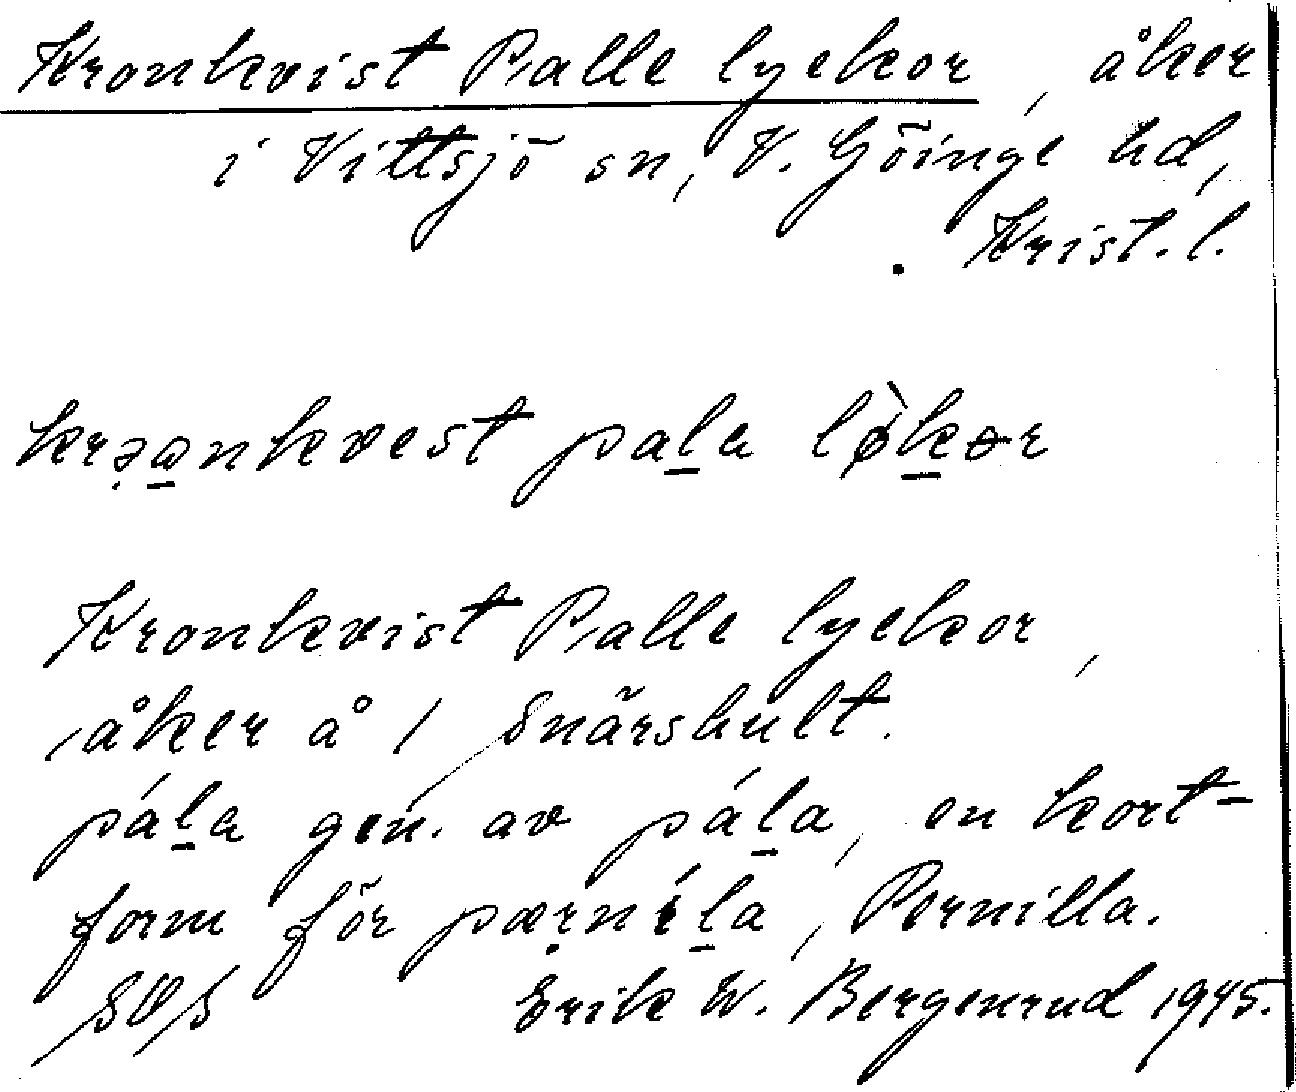 Kronkvist Palle lyckor, åker
i Vittsjö sn, V. Göinge hd,
Krist. l.
krɔaankvest pala lø̀kər
Kronkvist Palle lyckor,
åker å 1 Snärshult.
pála gen. av pála, en kort-
form för pærníla, Pernilla.
SOS Erik W. Bergenrud 1945.